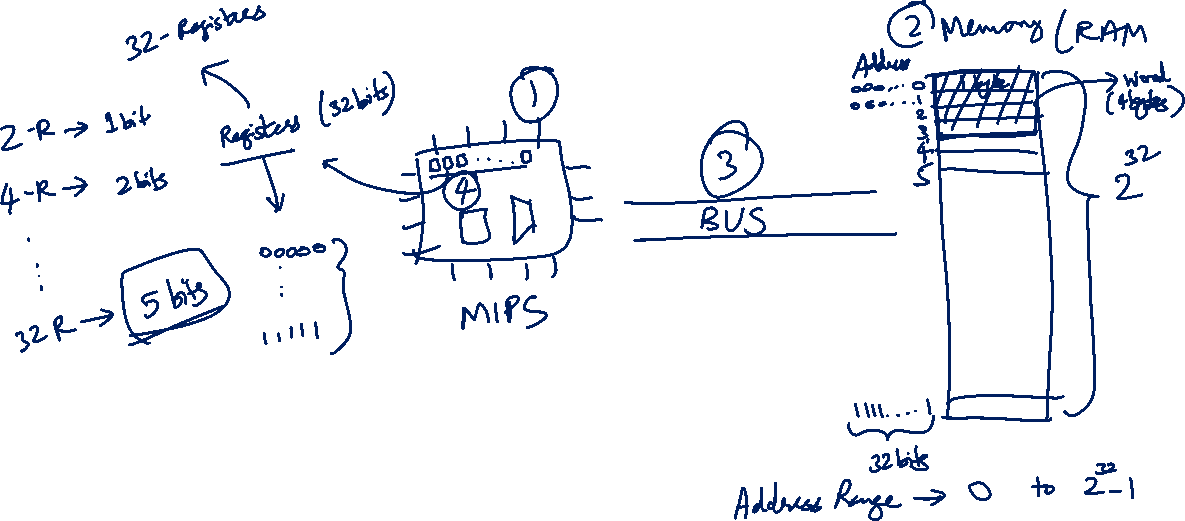 32-Registers
2-R → 1bit
4-R → 2bits
32R → 5 bits
Registers (32bits)
00000
11111
1
4
MIPS
3
BUS
2 Memory/(RAM
Address
000...0
000...1
2
3
4
5
1 byte
word
(4bytes)
2^32
1111....1
32bits
Address Range → 0 to 2^32-1